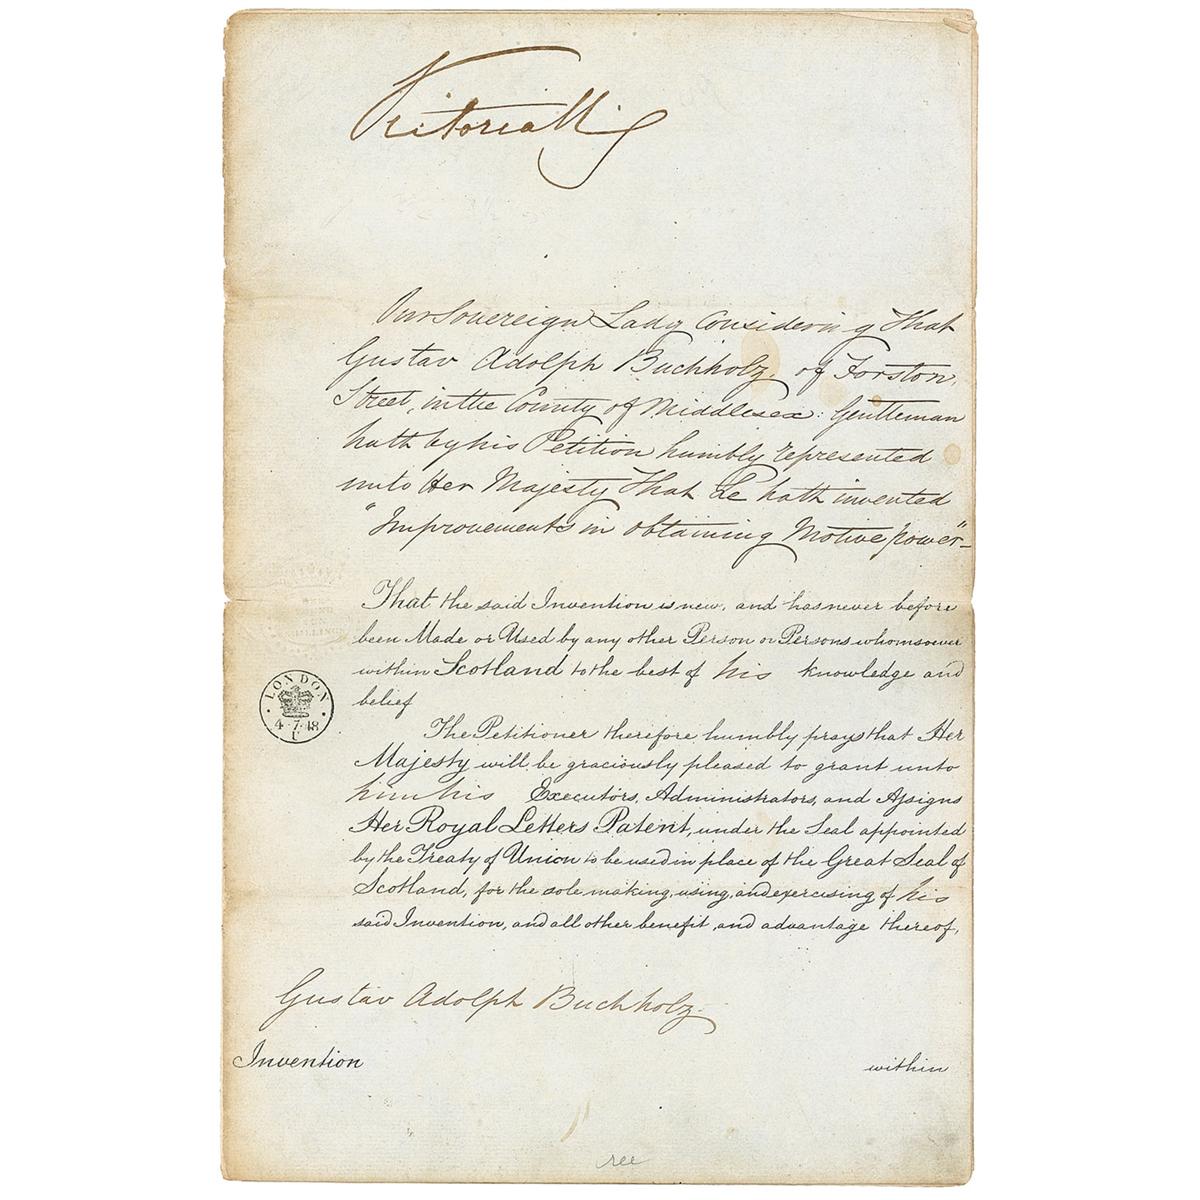 Victoria R
Our Sovereign Lady Considering That
Gustav Adolph Buchholz, of Forston
Street, in the County of Middlesex: Gentleman
hath by his Petition humbly represented
unto Her Majesty That He hath invented
"Improvements in obtaining Motive power"
That the said Invention is new, and has never before
been Made or Used by any other Person or Persons whomsoever
within Scotland to the best of his knowledge and
belief
The Petitioner therefore humbly prays that Her
Majesty will be graciously pleased to grant unto
him his Executors, Administrators, and Assigns
Her Royal Letters Patent, under the Seal appointed
by the Treaty of Union to be used in place of the Great Seal of
Scotland, for the sole making, using, and exercising of his
said Invention, and all other benefit, and advantage thereof,
LONDON
4·7·18
U
Gustav Adolph Buchholz
Invention within